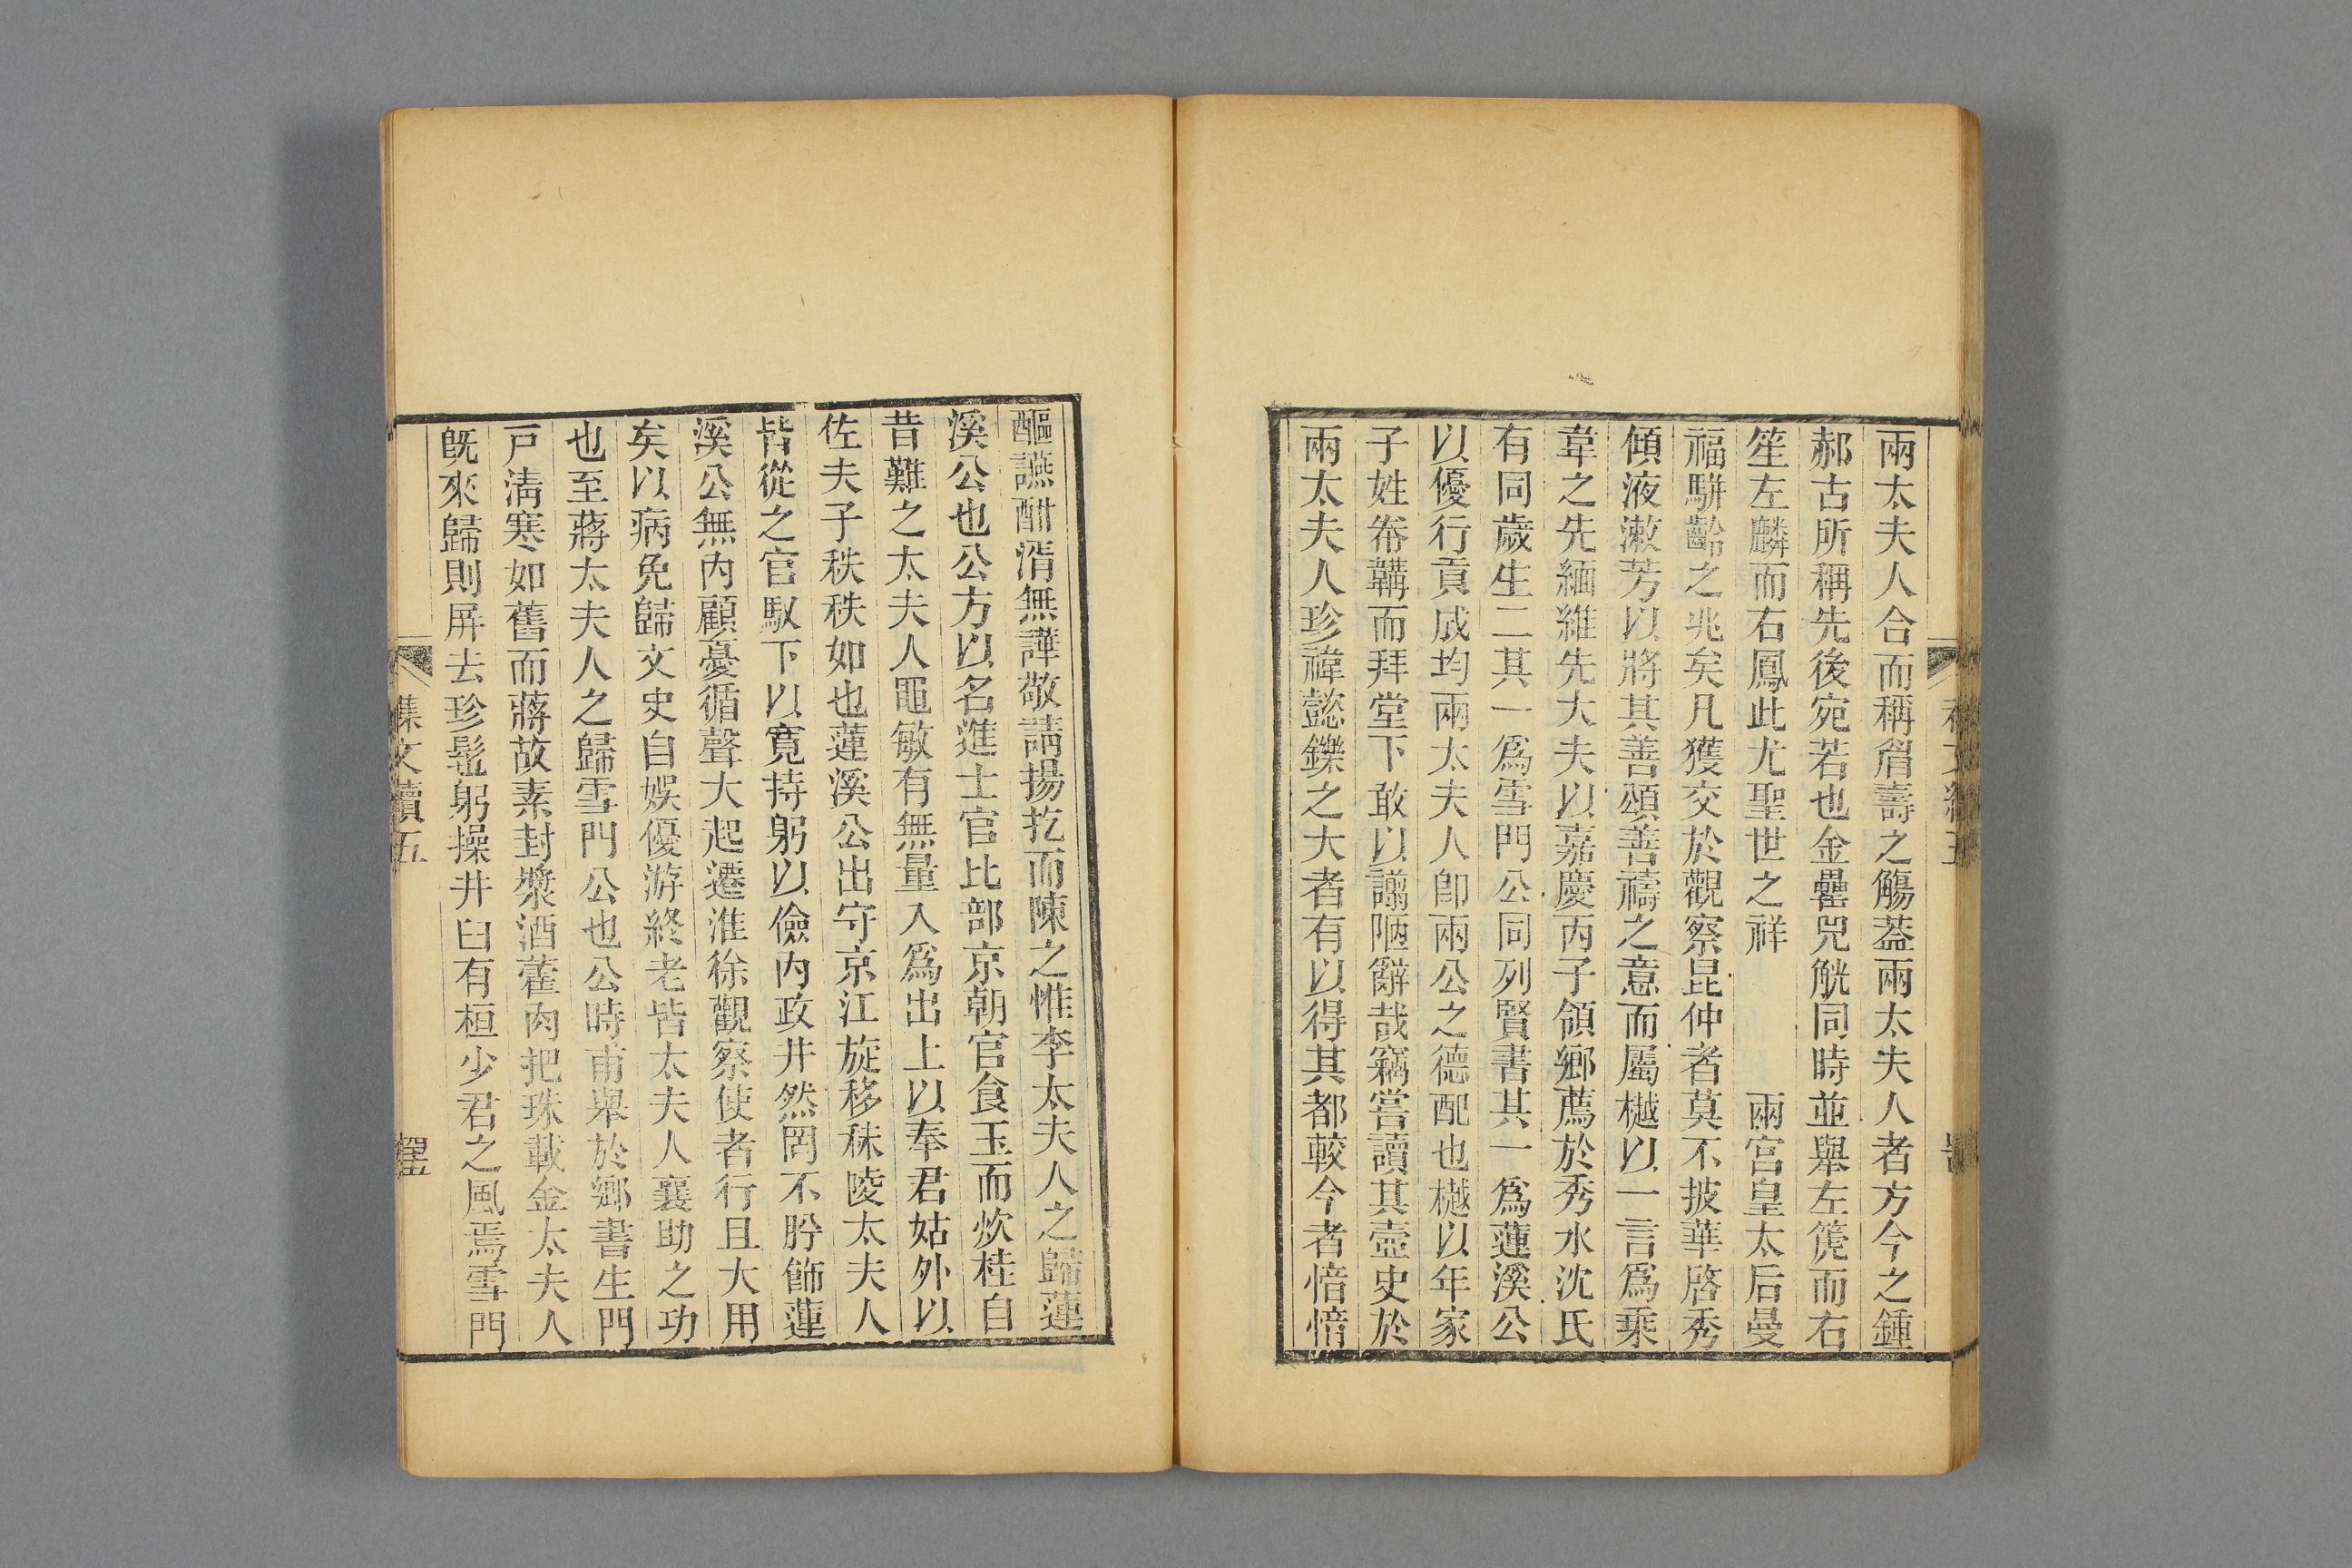 兩太夫人合而稱眉壽之觴葢兩太夫人者方今之鍾
郝古所稱先後宛若也金罍兕觥同時並舉左箎而右
笙左麟而右鳳此尤聖世之祥　　兩宮皇太后曼
福駢齡之兆矣凡獲交於觀察昆仲者莫不披華啓秀
傾液漱芳以將其善頌善禱之意而屬樾以一言爲乘
韋之先緬維先大夫以嘉慶丙子領鄉薦於秀水沈氏
有同歲生二其一爲雪門公同列賢書其一爲蓮溪公
以優行貢成均兩太夫人卽兩公之德配也樾以年家
子姓帣韝而拜堂下敢以謭陋辭哉竊嘗讀其壼史於
兩太夫人珍禕懿鑠之大者有以得其都較今者愔愔
醧讌酣湑無譁敬請揚扢而陳之惟李太夫人之歸蓮
溪公也公方以名進士官比部京朝官食玉而炊桂自
昔難之太夫人黽敏有無量入爲出上以奉君姑外以
佐夫子秩秩如也蓮溪公出守京江旋移秣陵太夫人
皆從之官馭下以寬持躬以儉內政井然罔不肸飾蓮
溪公無內顧憂循聲大起遷淮徐觀察使者行且大用
矣以病免歸文史自娛優游終老皆太夫人襄助之功
也至蔣太夫人之歸雪門公也公時甫舉於鄉書生門
戸淸寒如舊而蔣故素封漿酒藿肉把珠載金太夫人
旣來歸則屏去珍髢躬操井臼有桓少君之風焉雪門
集文續五